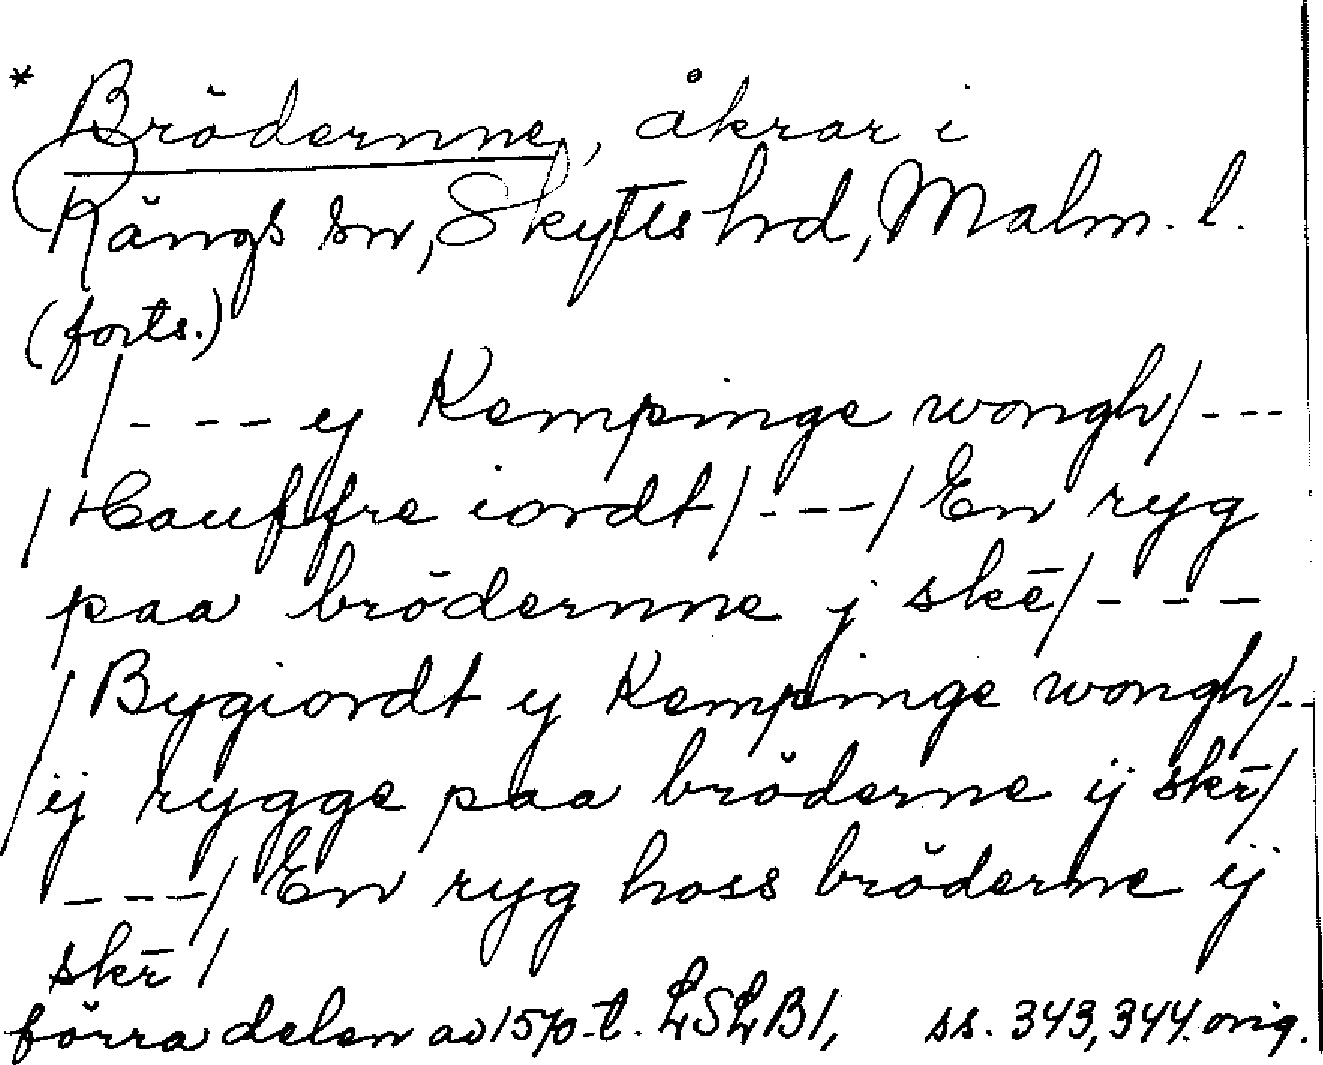 * Brödernne, åkrar i
Rängs sn, Skytts hd, Malm. l.
(forts.)
/- - - ey Kempinge wongh/- - -
/Hauffre iordt/- - -/ En ryg
paa brödernne j skē/- - -
/Bygiordt ey Kempinge wongh/- -
ij rygge paa bröderne ij skr̄/
- - -/ En ryg hoss bröderne ij
skr̄ /
förra delen av 1570-t. LSLB1, ss. 343, 344. orig.